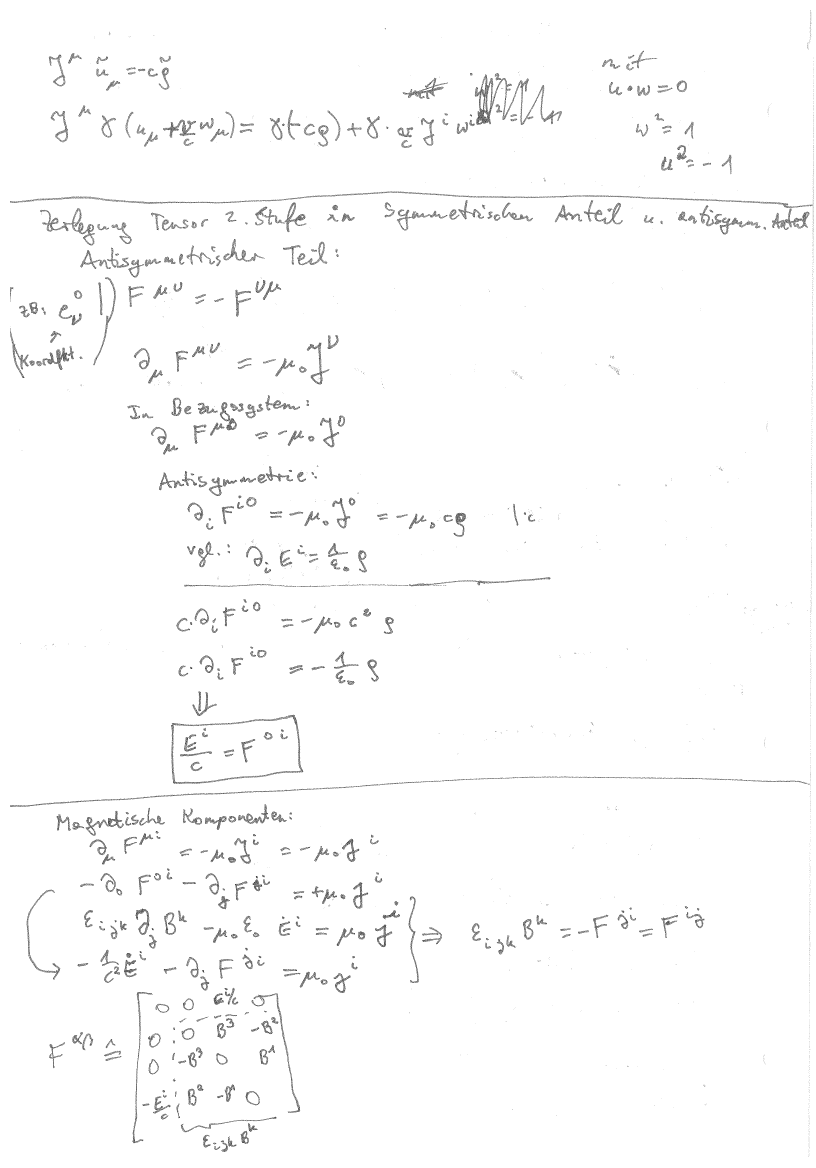 J^μ ũ_μ = -c ρ̃
mit
u·w = 0
J^μ γ (u_μ + v/c w_μ) = γ·(-cρ) + γ· v/c J^i w^i
w² = 1
u² = -1
Zerlegung Tensor 2. Stufe in Symmetrischen Anteil u. antisymm. Anteil
Antisymmetrischer Teil:
(zB: e_ν^0 !) F^{μν} = -F^{νμ}
↑
Koordfkt.
∂_μ F^{μν} = -μ₀ J^ν
In Bezugssystem:
∂_μ F^{μ0} = -μ₀ J^0
Antisymmetrie:
∂_i F^{i0} = -μ₀ J^0 = -μ₀ cρ |·c
vgl.: ∂_i E^i = 1/ε₀ ρ
c·∂_i F^{i0} = -μ₀ c² ρ
c·∂_i F^{i0} = - 1/ε₀ ρ
⇓
E^i/c = F^{0i}
Magnetische Komponenten:
∂_μ F^{μi} = -μ₀ J^i = -μ₀ j^i
-∂_0 F^{0i} - ∂_j F^{ji} = +μ₀ j^i
ε_{ijk} ∂_j B^k - μ₀ ε₀ Ė^i = μ₀ j^i } ⇒ ε_{ijk} B^k = -F^{ji} = F^{ij}
→ - 1/c² Ė^i - ∂_j F^{ji} = μ₀ j^i
F^{αβ} ≙
0 0 E^i/c 0
0 0 B³ -B²
0 -B³ 0 B¹
-E^i/c B² -B¹ 0
ε_{ijk} B^k